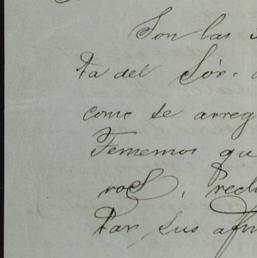 Son las
ta del Sór.
como se arreg
Tememos qu
ros, recl
tar sus afm